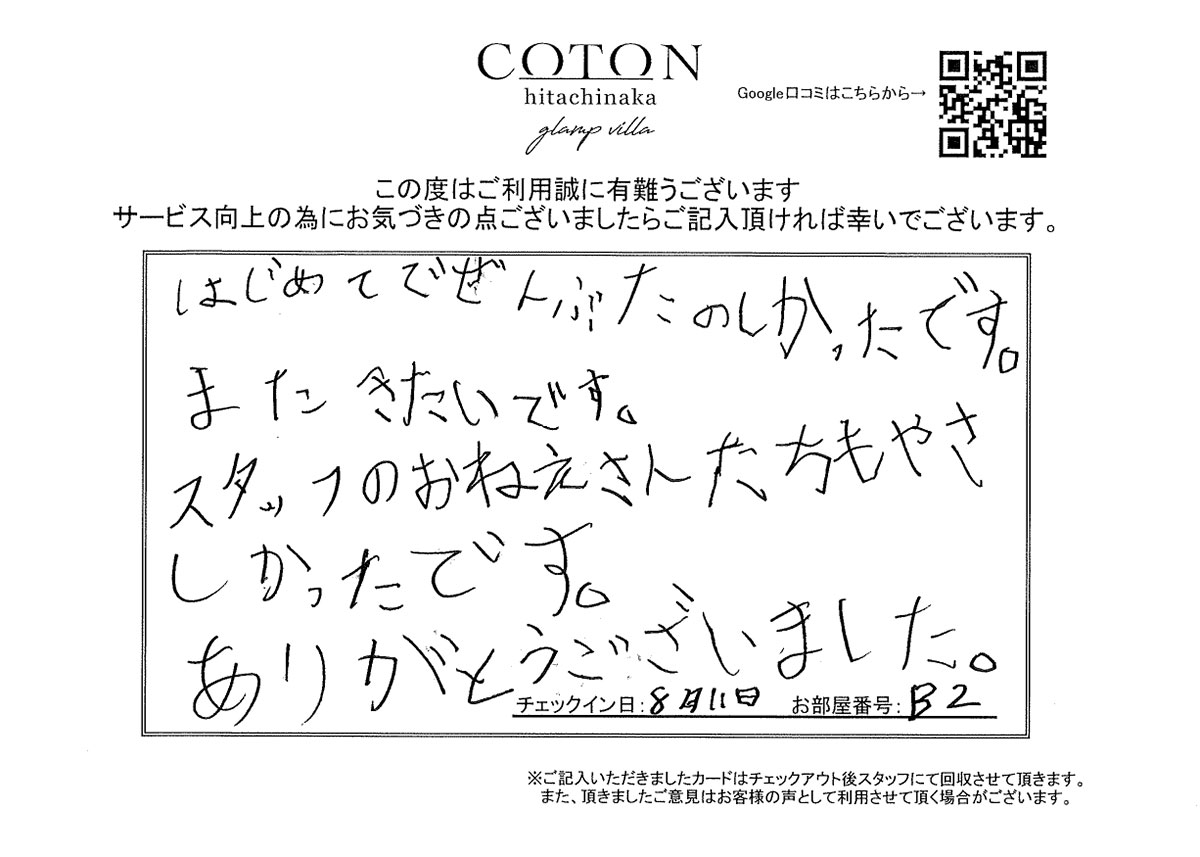 COTON
hitachinaka
glamp villa
Google口コミはこちらから→
この度はご利用誠に有難うございます
サービス向上の為にお気づきの点ございましたらご記入頂ければ幸いでございます。
はじめてでぜんぶたのしかったです。
またきたいです。
スタッフのおねえさんたちもやさ
しかったです。
ありがとうございました。
チェックイン日:8月11日 お部屋番号:B2
※ご記入いただきましたカードはチェックアウト後スタッフにて回収させて頂きます。
また、頂きましたご意見はお客様の声として利用させて頂く場合がございます。